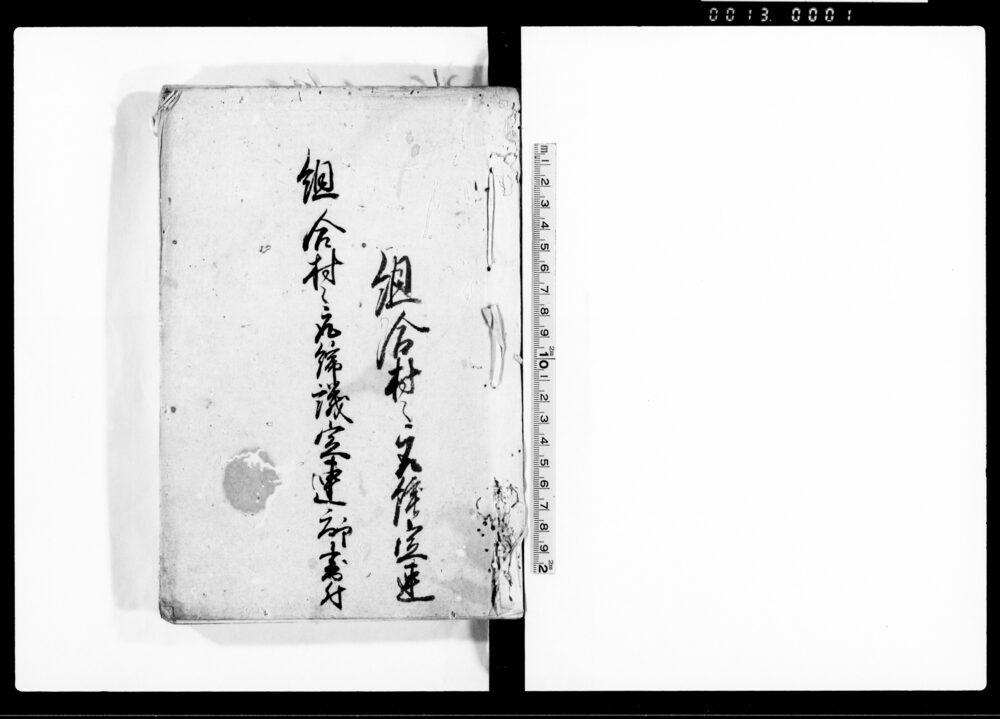 0013. 0001
組合村々取締定連
組合村々取締議定連印書付
m 1 2 3 4 5 6 7 8 9 10 1 2 3 4 5 6 7 8 9 2